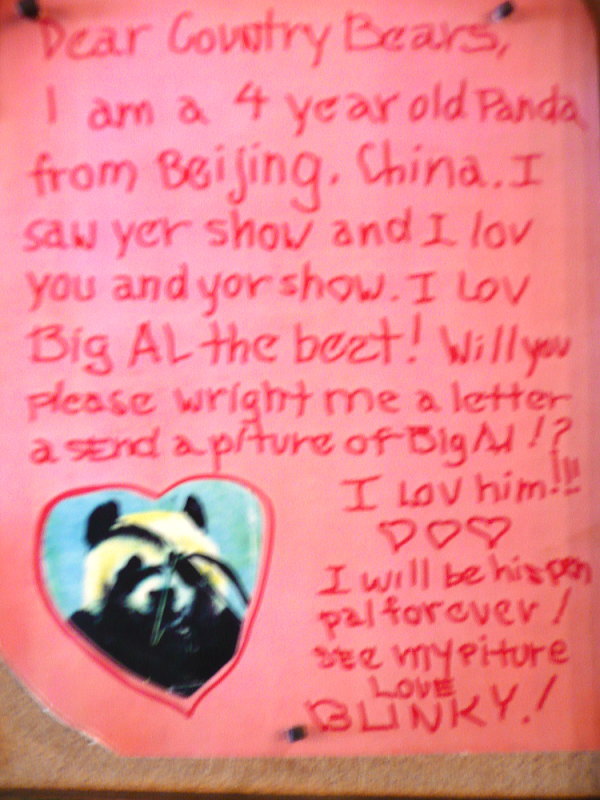 Dear Country Bears,
I am a 4 year old Panda
from Beijing. China. I
saw yer show and I lov
you and yor show. I Lov
Big AL the bezt! Will you
please wright me a letter
a send a piture of Big Al!?
I Lov him!!!
♡♡♡
I will be his pen
pal forever!
see my piture
LOVE
BLINKY.!